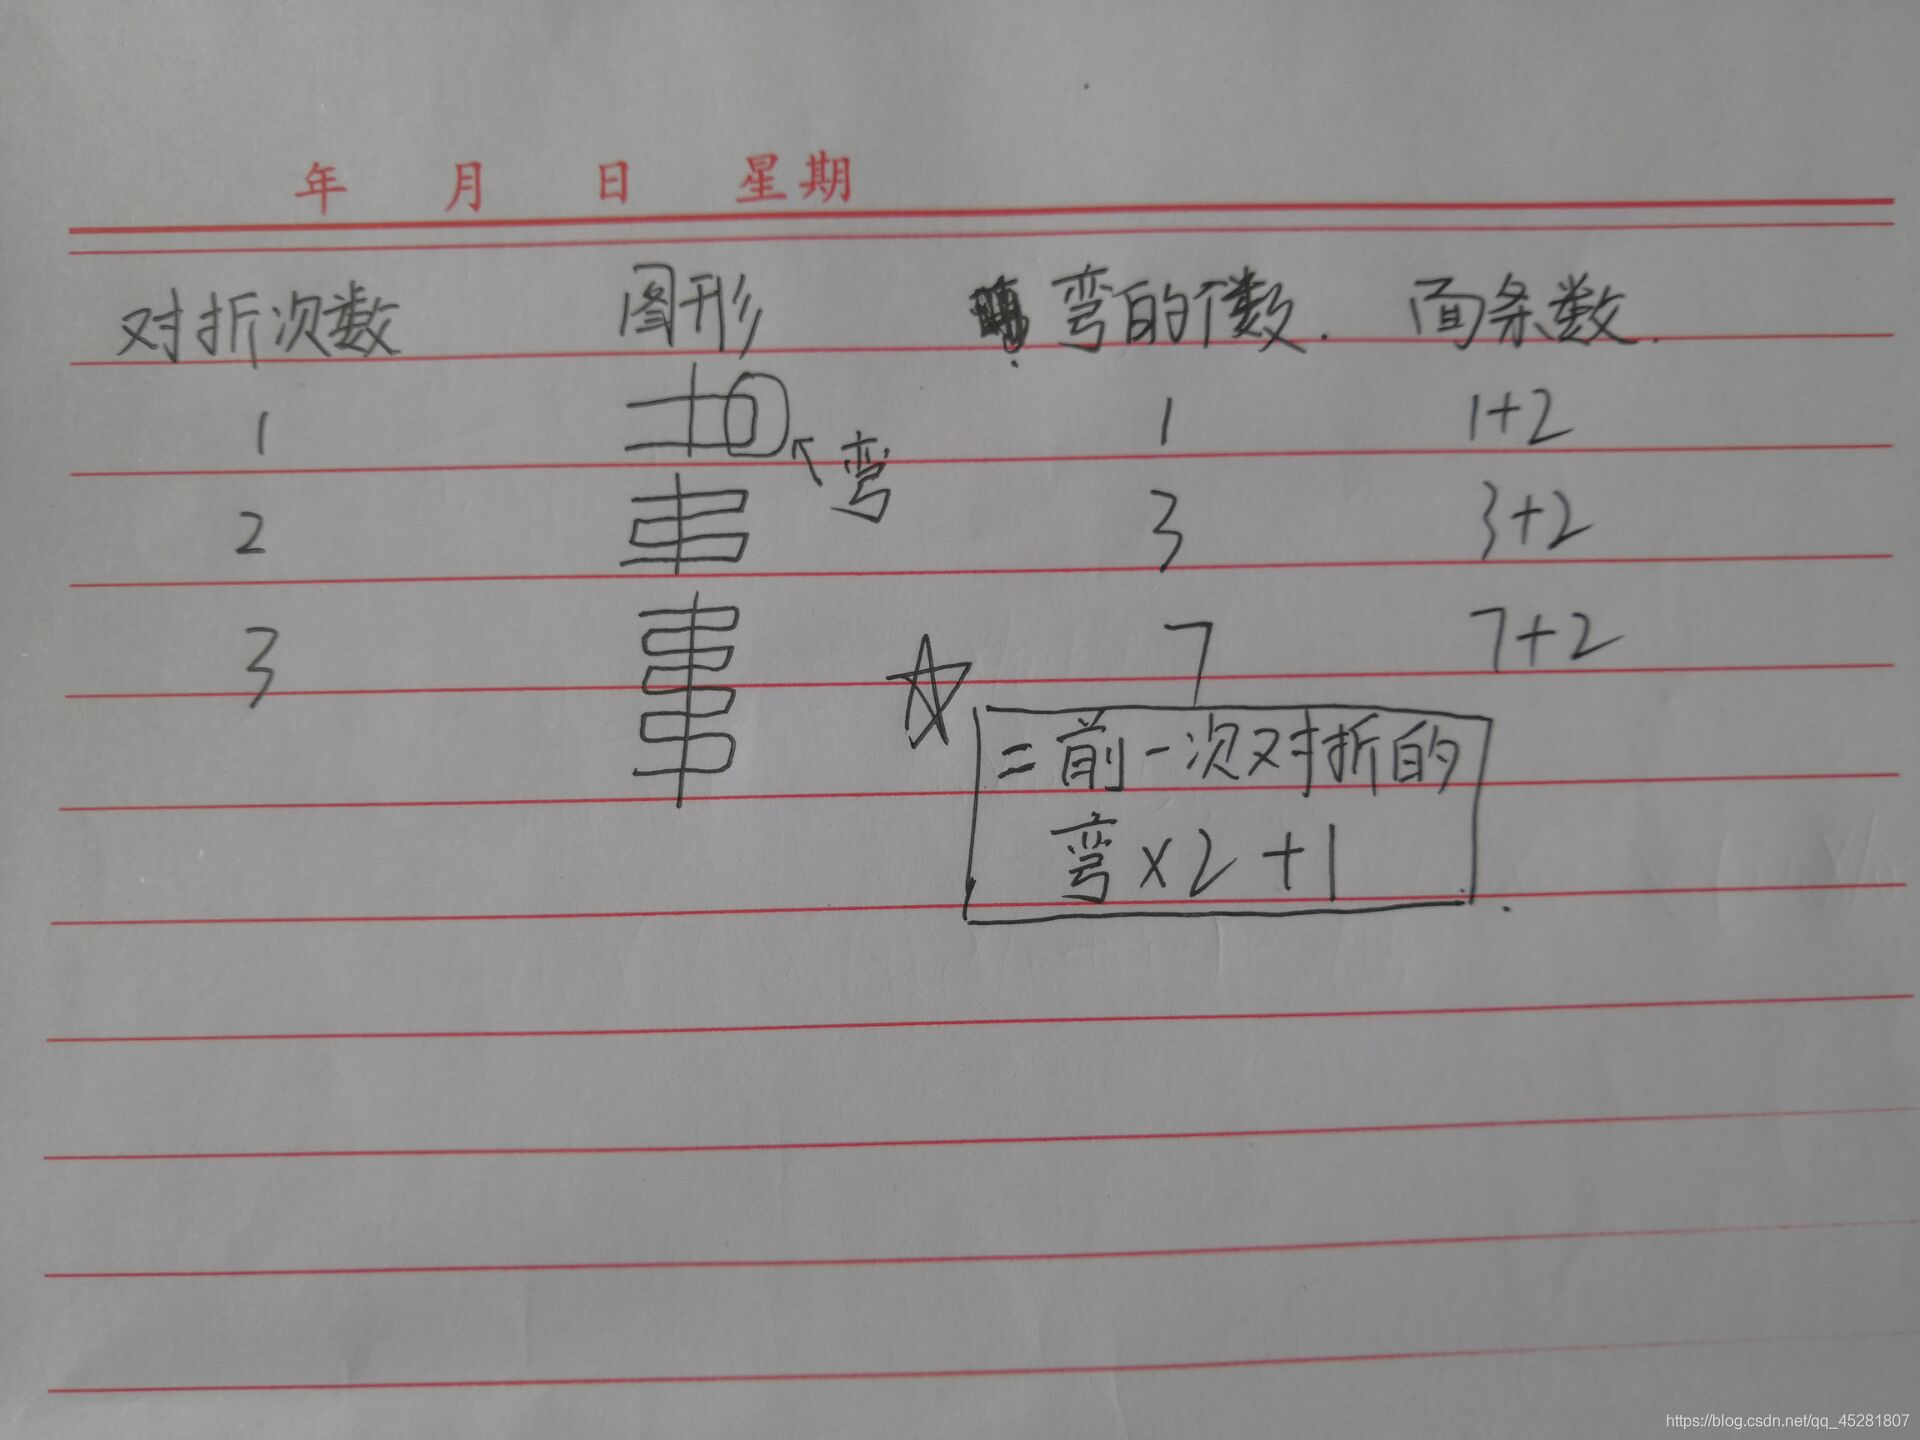 年 月 日 星期
对折次数 图形 弯的个数. 面条数.
1 1 1+2
弯
2 3 3+2
3 7 7+2
=前一次对折的
弯×2+1
https://blog.csdn.net/qq_45281807